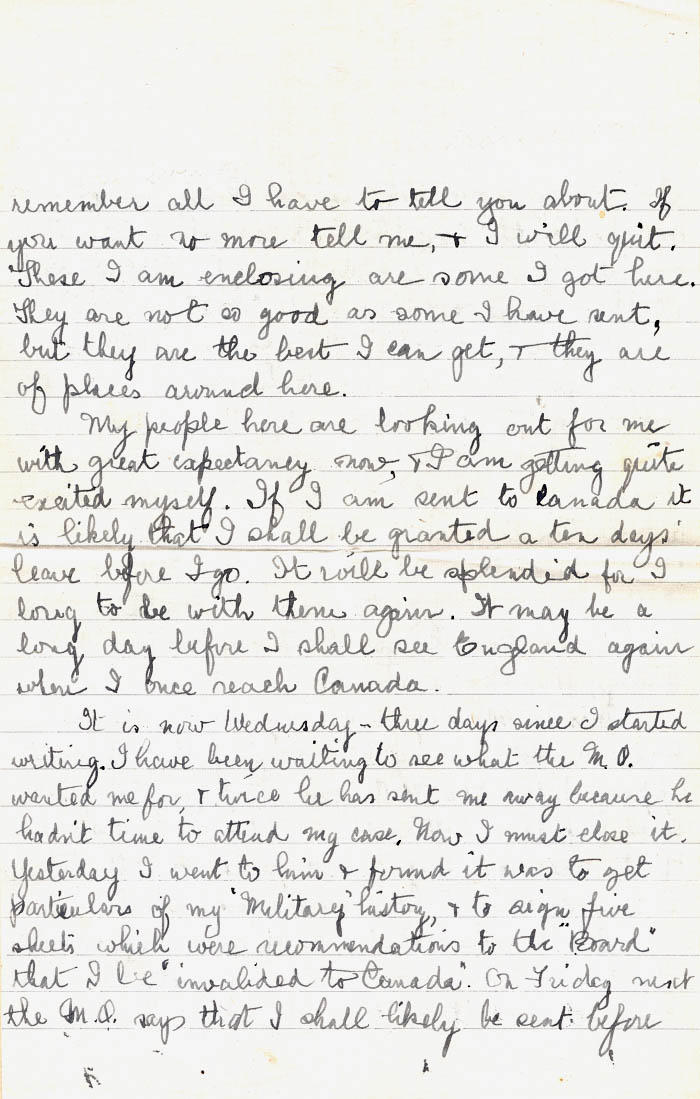 remember all I have to tell you about. If
you want no more tell me, & I will quit.
These I am enclosing are some I got here.
They are not so good as some I have sent,
but they are the best I can get, & they are
of places around here.
My people here are looking out for me
with great expectancy now, & I am getting quite
excited myself. If I am sent to Canada it
is likely that I shall be granted a ten days'
leave before I go. It will be splendid for I
long to be with them again. It may be a
long day before I shall see England again
when I once reach Canada.
It is now Wednesday - three days since I started
writing. I have been waiting to see what the M.O.
wanted me for, & twice he has sent me away because he
hadn't time to attend my case. Now I must close it.
Yesterday I went to him & found it was to get
particulars of my "Military" history, & to sign five
sheets which were recommendations to the "Board"
that I be "invalided to Canada". On Friday next
the M.O. says that I shall likely be sent before